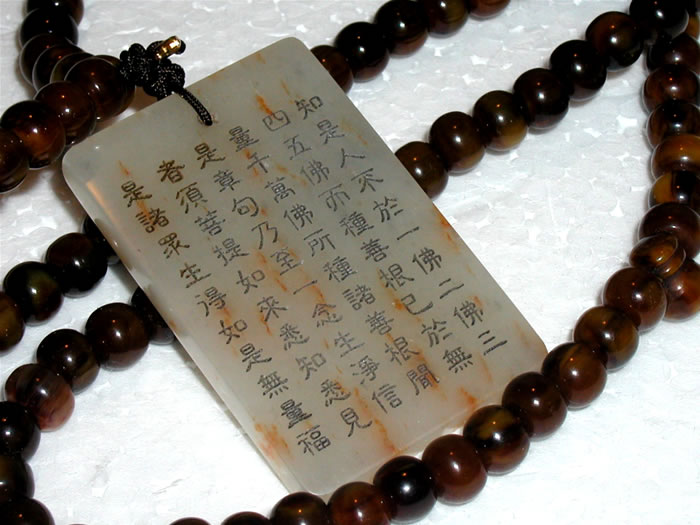 知是人不於一佛二佛三
四五佛而種善根已於無
量千萬佛所種諸善根聞
是章句乃至一念生淨信
者須菩提如來悉知悉見
是諸眾生得如是無量福